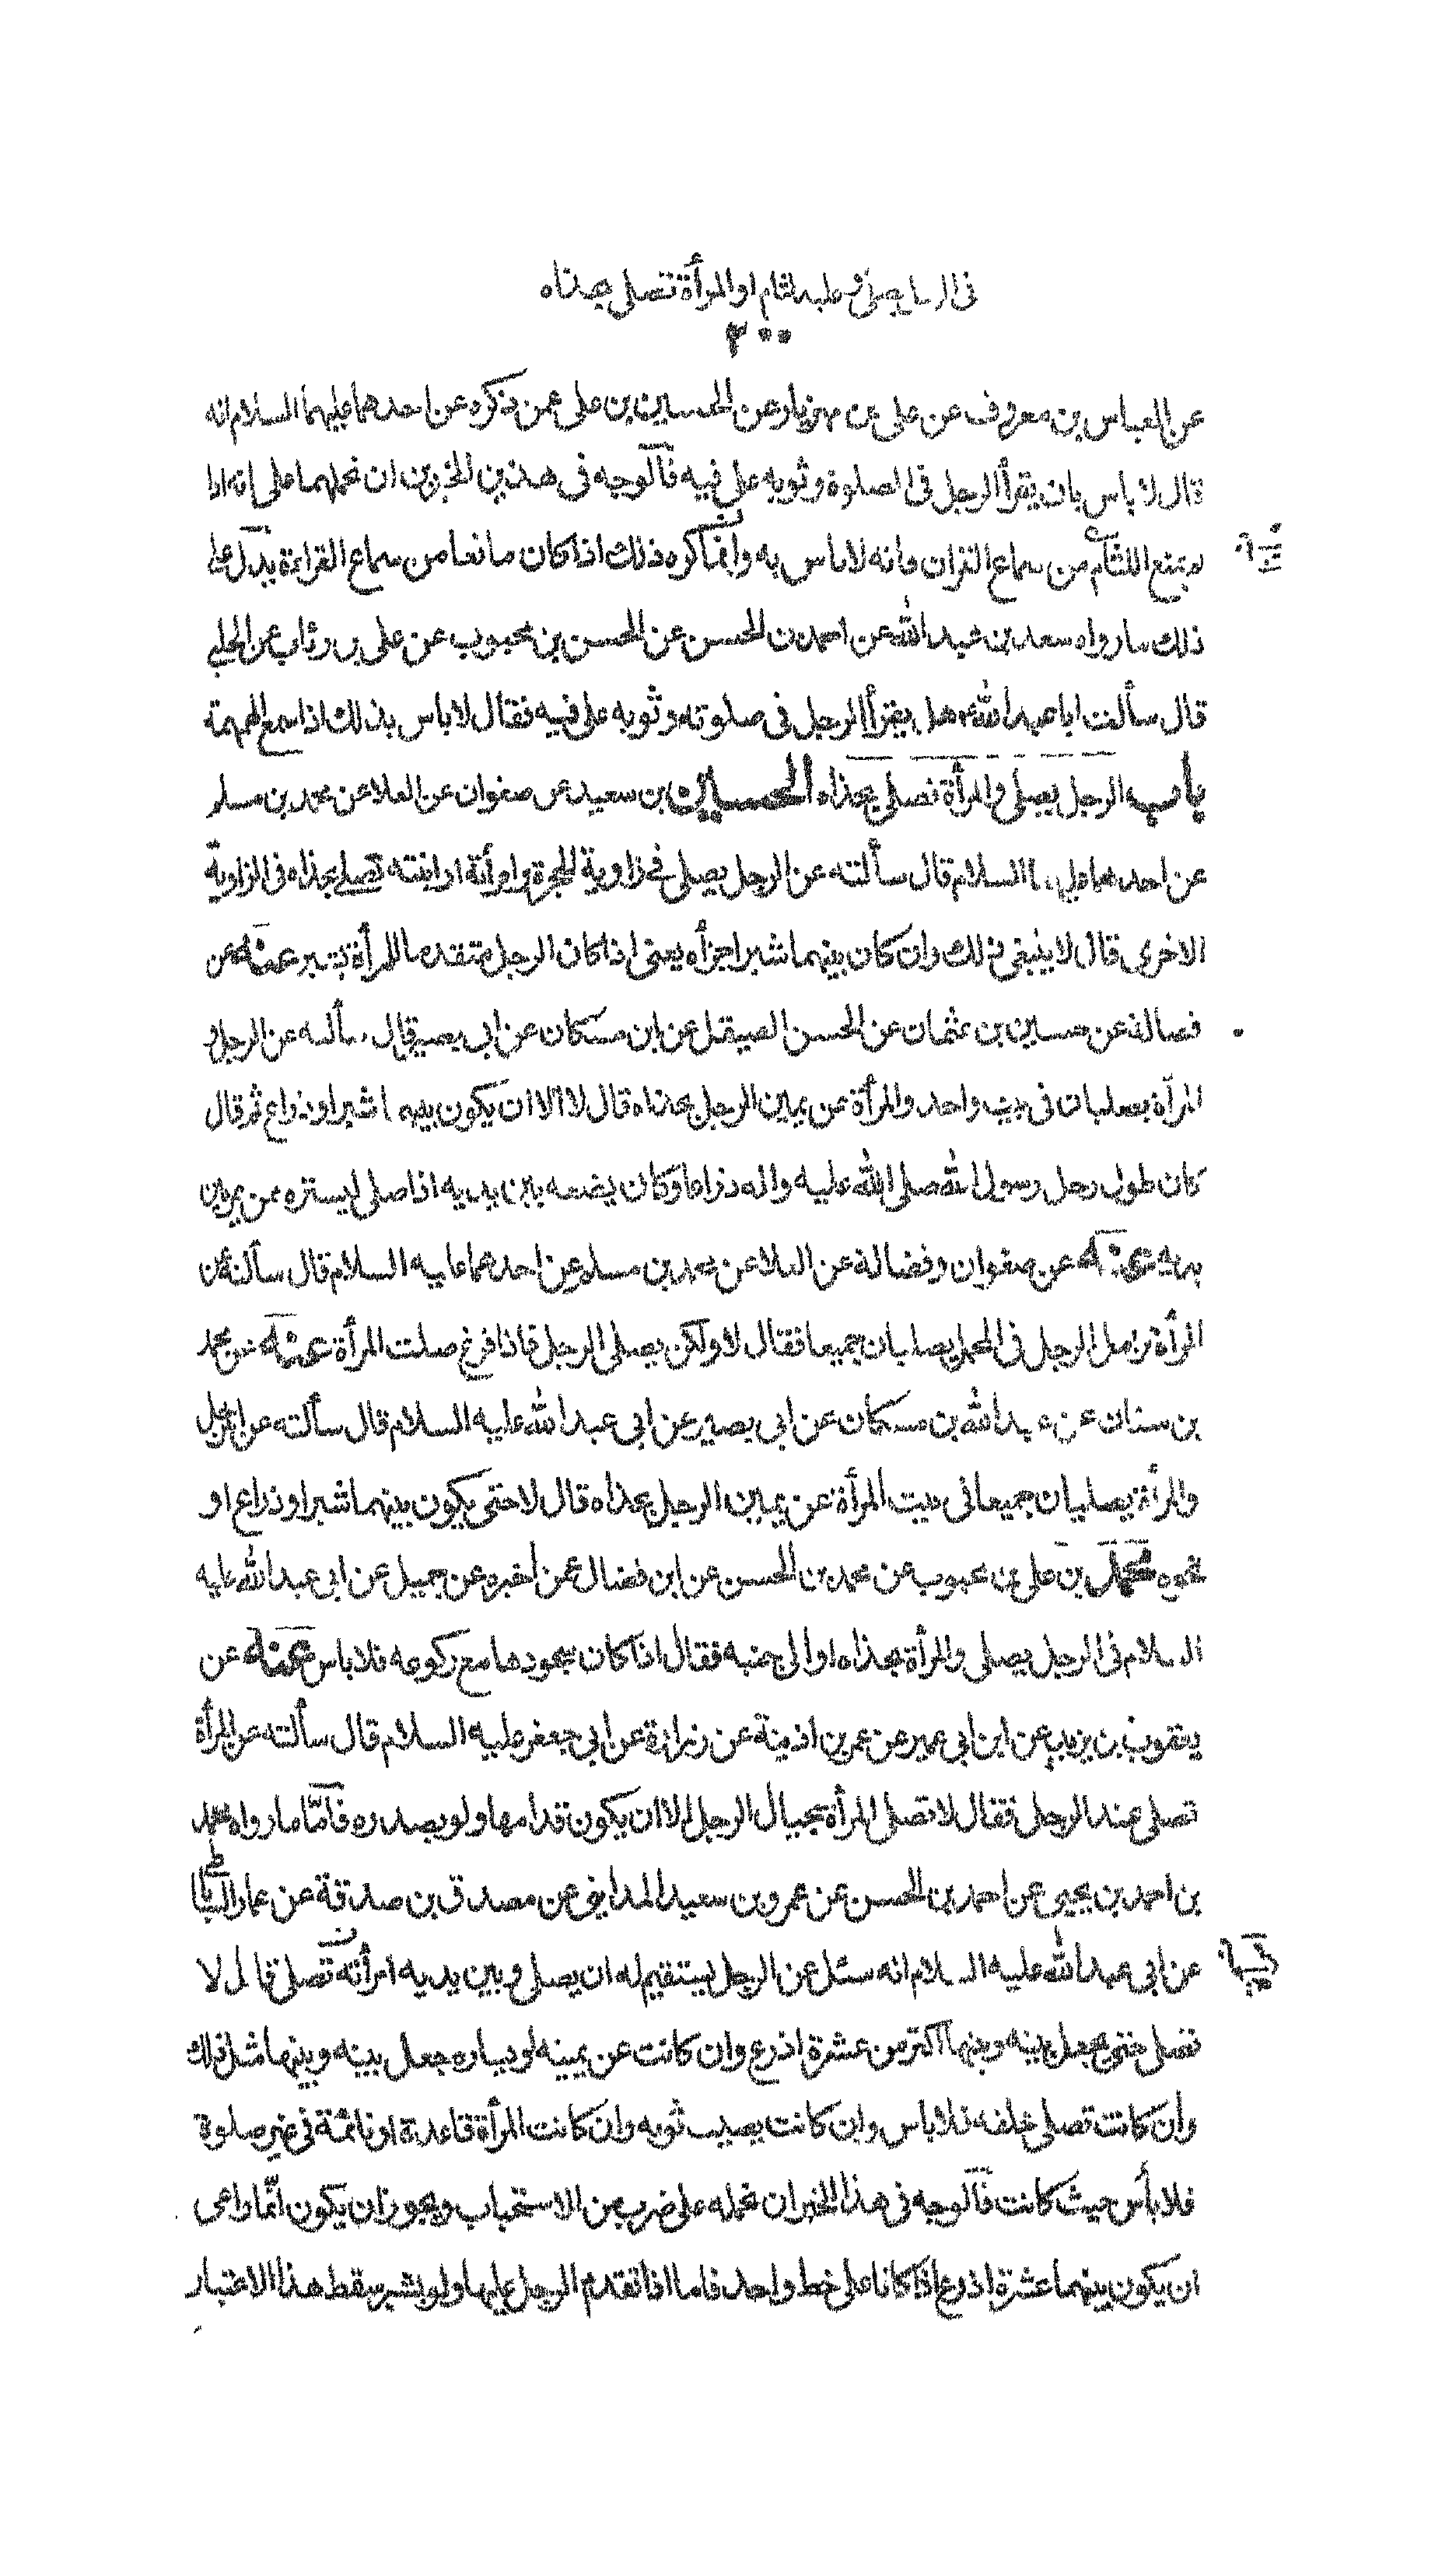 في الرجل يصلي و عليه لثام او المرأة تصلي بحذاه
٢٠٠
عن العباس بن معروف عن علي بن مهزيار عن الحسين بن علي عمن ذكره عن احدهما عليهما السلام انه
قال لا باس بان يقرأ الرجل في الصلوة وثوبه على فيه فالوجه في هذين الخبرين ان نحملهما على انه اذا
لم يمنع اللثام من سماع القران فانه لا باس به وانما كره ذلك اذا كان مانعا من سماع القراءة يدل على
ذلك ما رواه سعد بن عبد الله عن احمد بن الحسن عن الحسن بن محبوب عن علي بن رئاب عن الحلبي
قال سألت ابا عبد الله هل يقرأ الرجل في صلوته وثوبه على فيه فقال لا باس بذلك اذا سمع الهمهمة
باب الرجل يصلي والمرأة تصلي بحذاه الحسين بن سعيد عن صفوان عن العلا عن محمد بن مسلم
عن احدهما عليهما السلام قال سألته عن الرجل يصلي في زاوية الحجرة وامرأته او ابنته تصلي بحذاه في الزاوية
الاخرى قال لا ينبغي ذلك وان كان بينهما شبر اجزأه يعني اذا كان الرجل متقدما للمرأة بشبر عنه عن
فضالة عن حسين بن عثمان عن الحسن الصيقل عن ابن مسكان عن ابي بصير قال سألته عن الرجل و
المرأة يصليان في بيت واحد والمرأة عن يمين الرجل بحذاه قال لا الا ان يكون بينهما شبر او ذراع ثم قال
كان طول رحل رسول الله صلى الله عليه واله ذراعا وكان يضعه بين يديه اذا صلى ليستره ممن يمر بين
يديه عنه عن صفوان وفضالة عن العلا عن محمد بن مسلم عن احدهما عليه السلام قال سألته عن
المرأة تزامل الرجل في المحمل يصليان جميعا فقال لا ولكن يصلي الرجل فاذا فرغ صلت المرأة عنه عن محمد
بن سنان عن عبد الله بن مسكان عن ابي بصير عن ابي عبد الله عليه السلام قال سألته عن الرجل
والمرأة يصليان جميعا في بيت المرأة عن يمين الرجل بحذاه قال لا حتى يكون بينهما شبر او ذراع او
نحوه محمد بن علي بن محبوب عن محمد بن الحسن عن ابن فضال عمن اخبره عن جميل عن ابي عبد الله عليه
السلام في الرجل يصلي والمرأة بحذاه او الى جنبه فقال اذا كان سجودها مع ركوعه فلا باس عنه عن
يعقوب بن يزيد عن ابن ابي عمير عن عمر بن اذينة عن زرارة عن ابي جعفر عليه السلام قال سألته عن المرأة
تصلي عند الرجل فقال لا تصلي المرأة بحيال الرجل الا ان يكون قدامها ولو بصدره فأمّا ما رواه محمد
بن احمد بن يحيى عن احمد بن الحسن عن عمرو بن سعيد المدايني عن مصدق بن صدقة عن عمار الساباطي
عن ابي عبد الله عليه السلام انه سئل عن الرجل يستقيم له ان يصلي وبين يديه امرأته تصلي قال لا
تصل حتى يجعل بينه وبينها اكثر من عشرة اذرع وان كانت عن يمينه او يساره جعل بينه وبينها مثل ذلك
وان كانت تصلي خلفه فلا باس وان كانت يصيب ثوبه وان كانت المرأة قاعدة او نائمة في غير صلوة
فلا بأس حيث كانت فالوجه في هذا الخبر ان نحمله على ضرب من الاستحباب ويجوز ان يكون انّما راعى
ان يكون بينهما عشرة اذرع اذا كانا على خط واحد فاما اذا تقدم الرجل عليها ولو بشبر سقط هذا الاعتبار